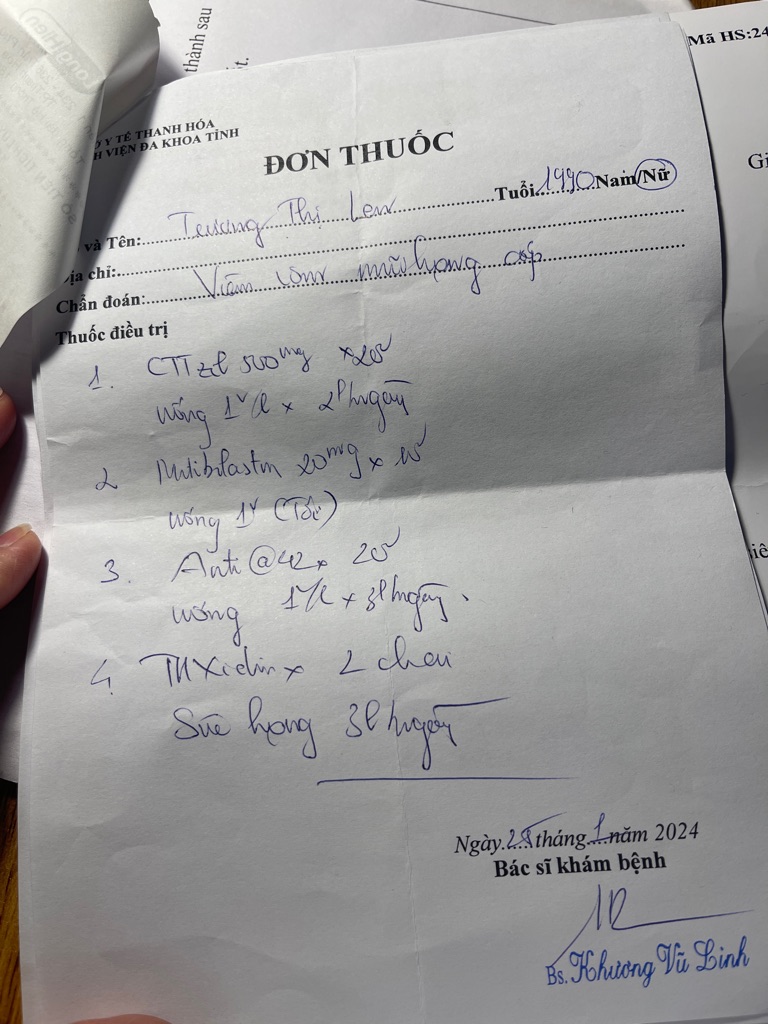 thành sau
Mã HS:24
Y TẾ THANH HÓA
VIỆN ĐA KHOA TỈNH
ĐƠN THUỐC
và Tên: Trương Thị Len Tuổi 1990 Nam/Nữ
ịa chỉ:
Chẩn đoán: Viêm mũi họng cấp
Thuốc điều trị
1. CTTzil 500mg x 20v
uống 1v/l x 2l/ngày
2 20mg x 10v
uống 1v (Tối)
3. Anti@42 x 20v
uống 1v/l x 3l/ngày.
4. THXidin x 2 chai
Súc họng 3l/ngày
Ngày tháng 1 năm 2024
Bác sĩ khám bệnh
Bs. Khương Vũ Linh